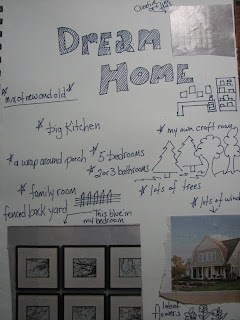 Dream
Home
*mix of new and old*
*big kitchen
*my own craft room
*a wrap around porch
*5 bedrooms
*2 or 3 bathrooms
*family room
*lots of trees
fenced back yard
This blue in
my bedroom
*lots of wind
lots of
flowers